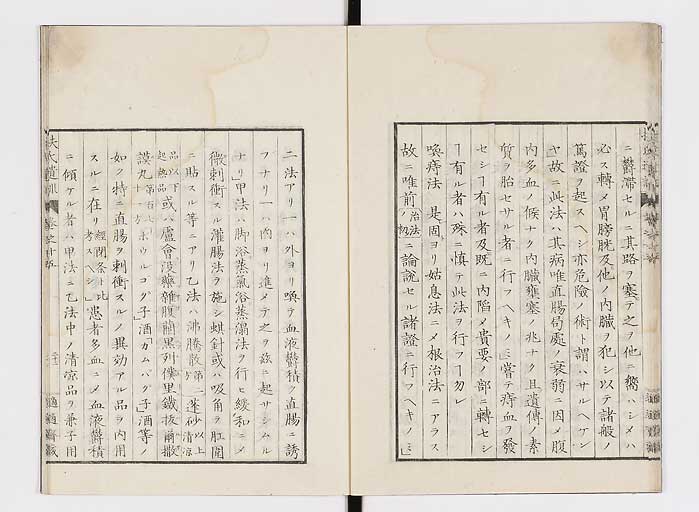 ニ欝滯セルニ其路ヲ塞テ之ヲ他ニ嚮ハシメハ
必ス轉メ胃膀胱及他ノ内臟ヲ犯シ以テ諸般ノ
篤證ヲ起スヘシ亦危險ノ術ト謂ハサルヘケン
ヤ故ニ此法ハ其病唯直腸局處ノ衰弱ニ因メ腹
内多血ノ候ナク内臟壅塞ノ兆ナク且遺傳ノ素
質ヲ胎セサル者ニ行フヘキノミ嘗テ痔血ヲ發
セシヿ有ル者及既ニ内陷メ貴要ノ部ニ轉セシ
ヿ有ル者ハ殊ニ慎テ此法ヲ行フヿ勿レ
喚痔法 是固ヨリ姑息法ニメ根治法ニアラス
故ニ唯前治法ノ初ニ論説セル諸證ニ行フヘキノミ
二法アリ一ハ外ヨリ喚テ血液欝積ヲ直腸ニ誘
フナリ一ハ内ヨリ進メテ之ヲ茲ニ起サシムル
ナリ」甲法ハ脚浴蒸氣浴蒸溻法ヲ行セ緩和ニメ
微刺衝スル灌腸法ヲ施シ蜞針或ハ吸角ヲ肛圍
ニ貼スル等ニアリ乙法ハ沸騰散
品以下起熱品或ハ盧會没藥
謨丸 子酒 子酒等ノ
如ク特ニ直腸ヲ刺衝スルノ異効アル品ヲ内用
スルニ在リ經閉條ト此考スヘシ患者多血ニメ血液欝積
ニ傾ケル者ハ甲法ニ乙法中ノ清凉品ヲ兼子用
扶氏遺訓
適適齋藏